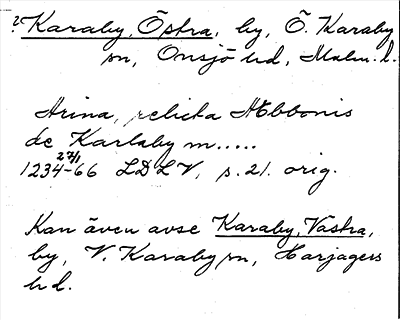 ? Karaby, Östra, by, Ö. Karaby
sn, Onsjö hd, Malm. l.
Arina, relicta Æbbonis
de Karlaby m.....
27/1
1234-66 LDLV, s. 21. orig.
Kan även avse Karaby, Västra,
by, V. Karaby sn, Harjagers
hd.